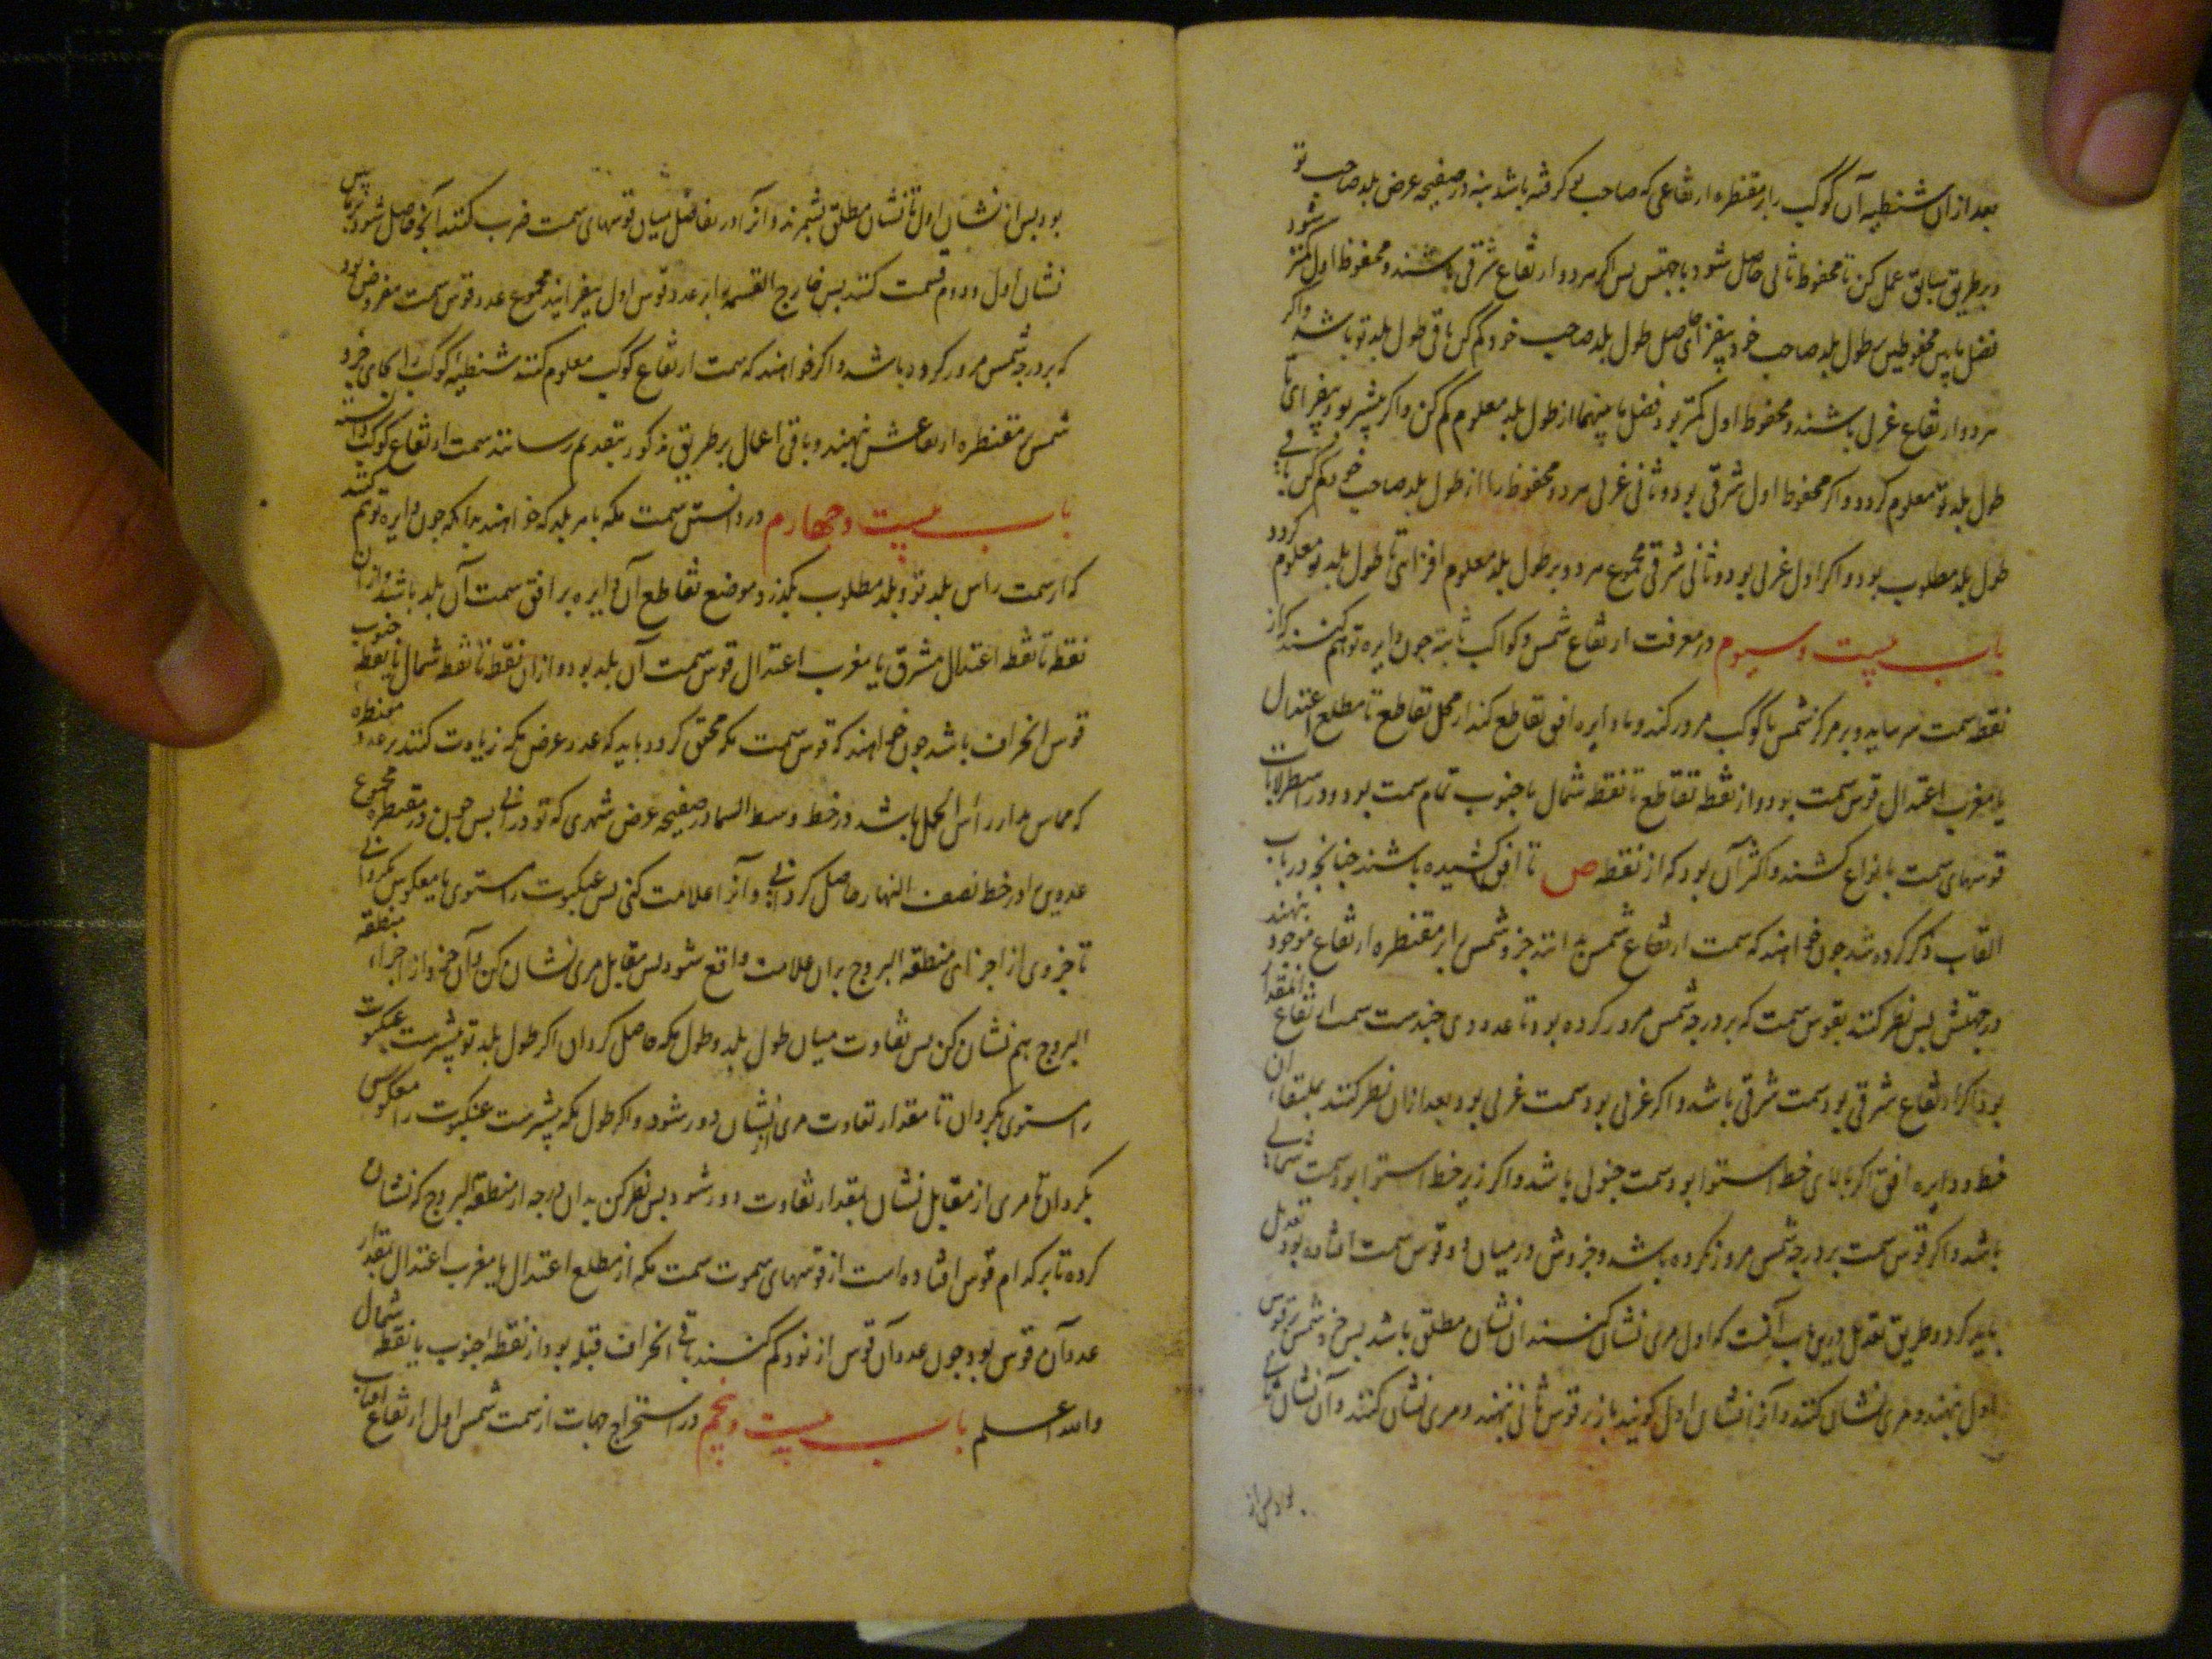 بعد ازان شنطیه آن کوکب را بر مقنطره ارتفاعی که صاحب کرفته باشد بنه در صفیحه عرض بلد صاحب تو
و بر طریق سابق عمل کن تا محفوظ ثانی حاصل شود با جهتش پس اکر هر دو ارتفاع شرقی باشند و محفوظ اول کمتر شود
فضل ما بین محفوظین بر طول بلد صاحب خود بیفزای طول بلد صاحب خود کم کن باقی طول بلد تو باشد و اکر
هر دو ارتفاع غربی باشند و محفوظ اول کمتر بود فضل ما بینهما از طول بلد معلوم کم کن و اکر بیشتر بود بیفزای تا
طول بلد تو معلوم کردد و اکر محفوظ اول شرقی بود و ثانی غربی هر دو محفوظ را از طول بلد صاحب خود کم کن باقی
طول بلد مطلوب بود و اکر اول غربی بود و ثانی شرقی مجموع هر دو بر طول بلد معلوم افزای تا طول بلد تو معلوم کردد
باب بیست و سیوم در معرفت ارتفاع شمس و کواکب ثابته جون دایره توهم کنند که از
نقطه سمت سر بیاید و بر مرکز شمس یا کوکب مرور کند و با دایره افق تقاطع کند از محل تقاطع تا مطلع اعتدال
یا مغرب اعتدال قوس سمت بود و از نقطه تقاطع تا نقطه شمال یا جنوب تمام سمت بود و در اسطرلابات
قوسهای سمت بانواع کشند و اکثر آن بود که از نقطه ص تا افق کشیده باشند جنانجه در باب
القاب ذکر کرده شد جون خواهند که سمت ارتفاع شمس بدانند جزو شمس را بر مقنطره ارتفاع موجود بنهند
در جهتش پس نظر کنند بقوس سمت که بر درجه شمس مرور کرده بود تا عدد وی جندست سمت ارتفاع آنمقدار
بود اکر ارتفاع شرقی بود سمت شرقی باشد و اکر غربی بود سمت غربی بود بعد ازان نظر کنند بملتقاء ان
خط و دایره افق اکر بالای خط استوا بود سمت جنوبی باشد و اکر زیر خط استوا بود سمت شمالی
باشد و اکر قوس سمت بر درجه شمس مرور نکرده باشد و جزوش در میان دو قوس سمت افتاده بود تعدیل
باید کرد و طریق تعدیل درین باب آنست که اول مری نشان کنند ان نشان مطلق باشد پس جزو شمس بر قوس
اول نهند و مری نشان کنند و آنرا نشان اول کویند باز بر قوس ثانی نهند و مری نشان کنند و آن نشان ثانی
بود پس از
بود پس از نشان اول تا نشان مطلق بشمرند و آنرا در تفاضل میان قوسهای سمت ضرب کنند آنجه حاصل شود پس بر مابین
نشان اول و دوم قسمت کنند پس خارج القسمه را بر عدد قوس اول بیفزایند مجموع عدد قوس سمت مفروض بود
که بر درجه شمس مرور کرده باشد و اکر خواهند که سمت ارتفاع کوکب معلوم کنند شنطیه کوکب را بجای جزو
شمس بر مقنطره ارتفاعش نهند و باقی اعمال بر طریق مذکور بتقدیم رسانند سمت ارتفاع کوکب دانسته
باب بیست و چهارم در دانستن سمت مکه یا هر بلد که خواهند بدانکه جون دایره توهم کنند
که از سمت راس بلد تو و بلد مطلوب بکذرد موضع تقاطع آن دایره بر افق سمت آن بلد باشد و از ان
نقطه تا نقطه اعتدال مشرق یا مغرب اعتدال قوس سمت آن بلد بود و ازان نقطه تا نقطه شمال یا نقطه جنوب
قوس انحراف باشد جون خواهند که قوس سمت مکه محقق کردد باید که عدد عرض مکه زیادت کنند بر عدد مقنطره
که مماس مدار راس الحمل باشد در خط وسط السما در صفیحه عرض شهری که تو در آنی پس جون در مقنطره مجموع
عددین در خط نصف النهار حاصل کردانی و آنرا علامت کنی پس عنکبوت را مستوی یا معکوس بکردانی
تا جزوی از اجزای منطقه البروج بران علامت واقع شود پس مقابل مری نشان کن و آن جزو از اجزاء منطقه
البروج هم نشان کن پس تفاوت میان طول بلد و طول مکه حاصل کردان اکر طول بلد تو بیشترست عنکبوت
را مستوی بکردان تا مقدار تفاوت مری از نشان دور شود و اکر طول مکه بیشترست عنکبوت را معکوس
بکردان تا مری از مقابل نشان بمقدار تفاوت دور شود پس نظر کن بدان درجه از منطقه البروج که نشان
کرده تا بر کدام قوس افتاده است از قوسهای سموت سمت مکه از مطلع اعتدال یا مغرب اعتدال بمقدار
عدد آن قوس بود جون عدد آن قوس از نود کم کنند باقی انحراف قبله بود از نقطه جنوب یا نقطه شمال
والله اعلم باب بیست و پنجم در استخراج جهات از سمت شمس اول ارتفاع آفتاب